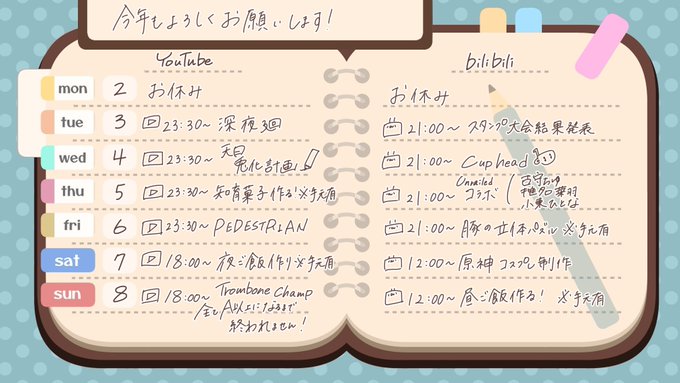 今年もよろしくお願いします!
YouTube
bilibili
mon 2 お休み
お休み
tue 3 23:30~ 深夜廻
21:00~ スタンプ大会結果発表
wed 4 23:30~ 天日
化計画
21:00~ Cup head
thu 5 23:30~ 知育菓子作る!※手元有
21:00~ Unrailed
コラボ
小東ひとな
fri 6 23:30~ PEDESTRIAN
21:00~ 豚の立体パズル ※手元有
sat 7 18:00~ 夜ご飯作り※手元有
12:00~ 原神 コスプレ制作
sun 8 18:00~ Trombone Champ
全てA以上になるまで
終われません!
12:00~ 昼ご飯作る! ※手元有